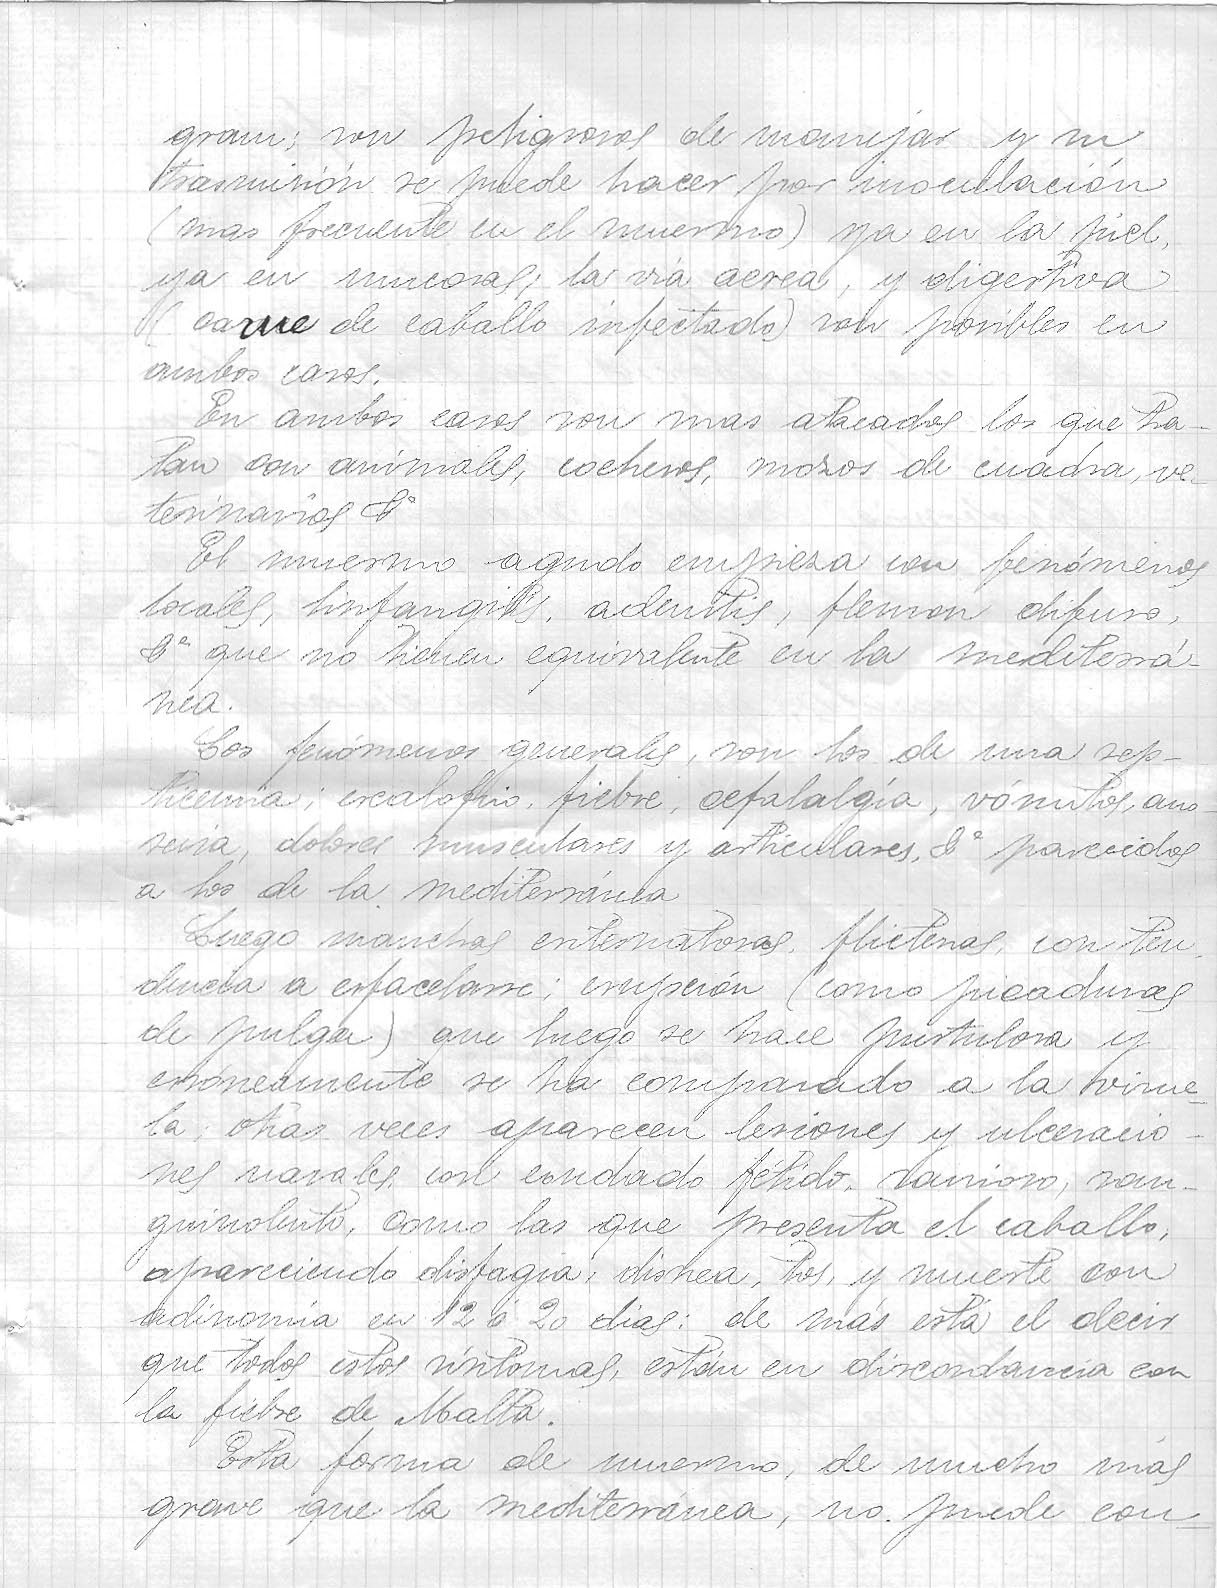 gram; son peligrosos de manejar y su
trasmisión se puede hacer por inoculación
(mas frecuente en el muermo) ya en la piel,
ya en mucosas; la via aerea, y digestiva
(carne de caballo infectado) son posibles en
ambos casos.
En ambos casos son mas atacados los que tra-
tan con animales, cocheros, mozos de cuadra, ve-
terinarios &ª
El muermo agudo empieza con fenómenos
locales, linfangitis, adenitis, flemon difuso,
&ª que no tienen equivalente en la mediterrá-
nea.
Los fenómenos generales, son los de una sep-
ticemia; escalofrio, fiebre, cefalalgía, vómitos, ano-
rexia, dolores musculares y articulares, &ª parecidos
a los de la mediterránea
Luego manchas eritematosas, flictenas, con ten-
dencia a esfacelarse; erupción (como picaduras
de pulga) que luego se hace pustulosa y
erroneamente se ha comparado a la virue-
la; otras veces aparecen lesiones y ulceracio-
nes nasales con exudado fétido, sanioso, san-
guinolento, como las que presenta el caballo,
apareciendo disfagia, disnea, tos, y muerte con
adinamía en 12 ó 20 dias: de más está el decir
que todos estos síntomas, están en discordancia con
la fiebre de Malta.
Esta forma de muermo, de mucho más
grave que la mediterránea, no puede con-